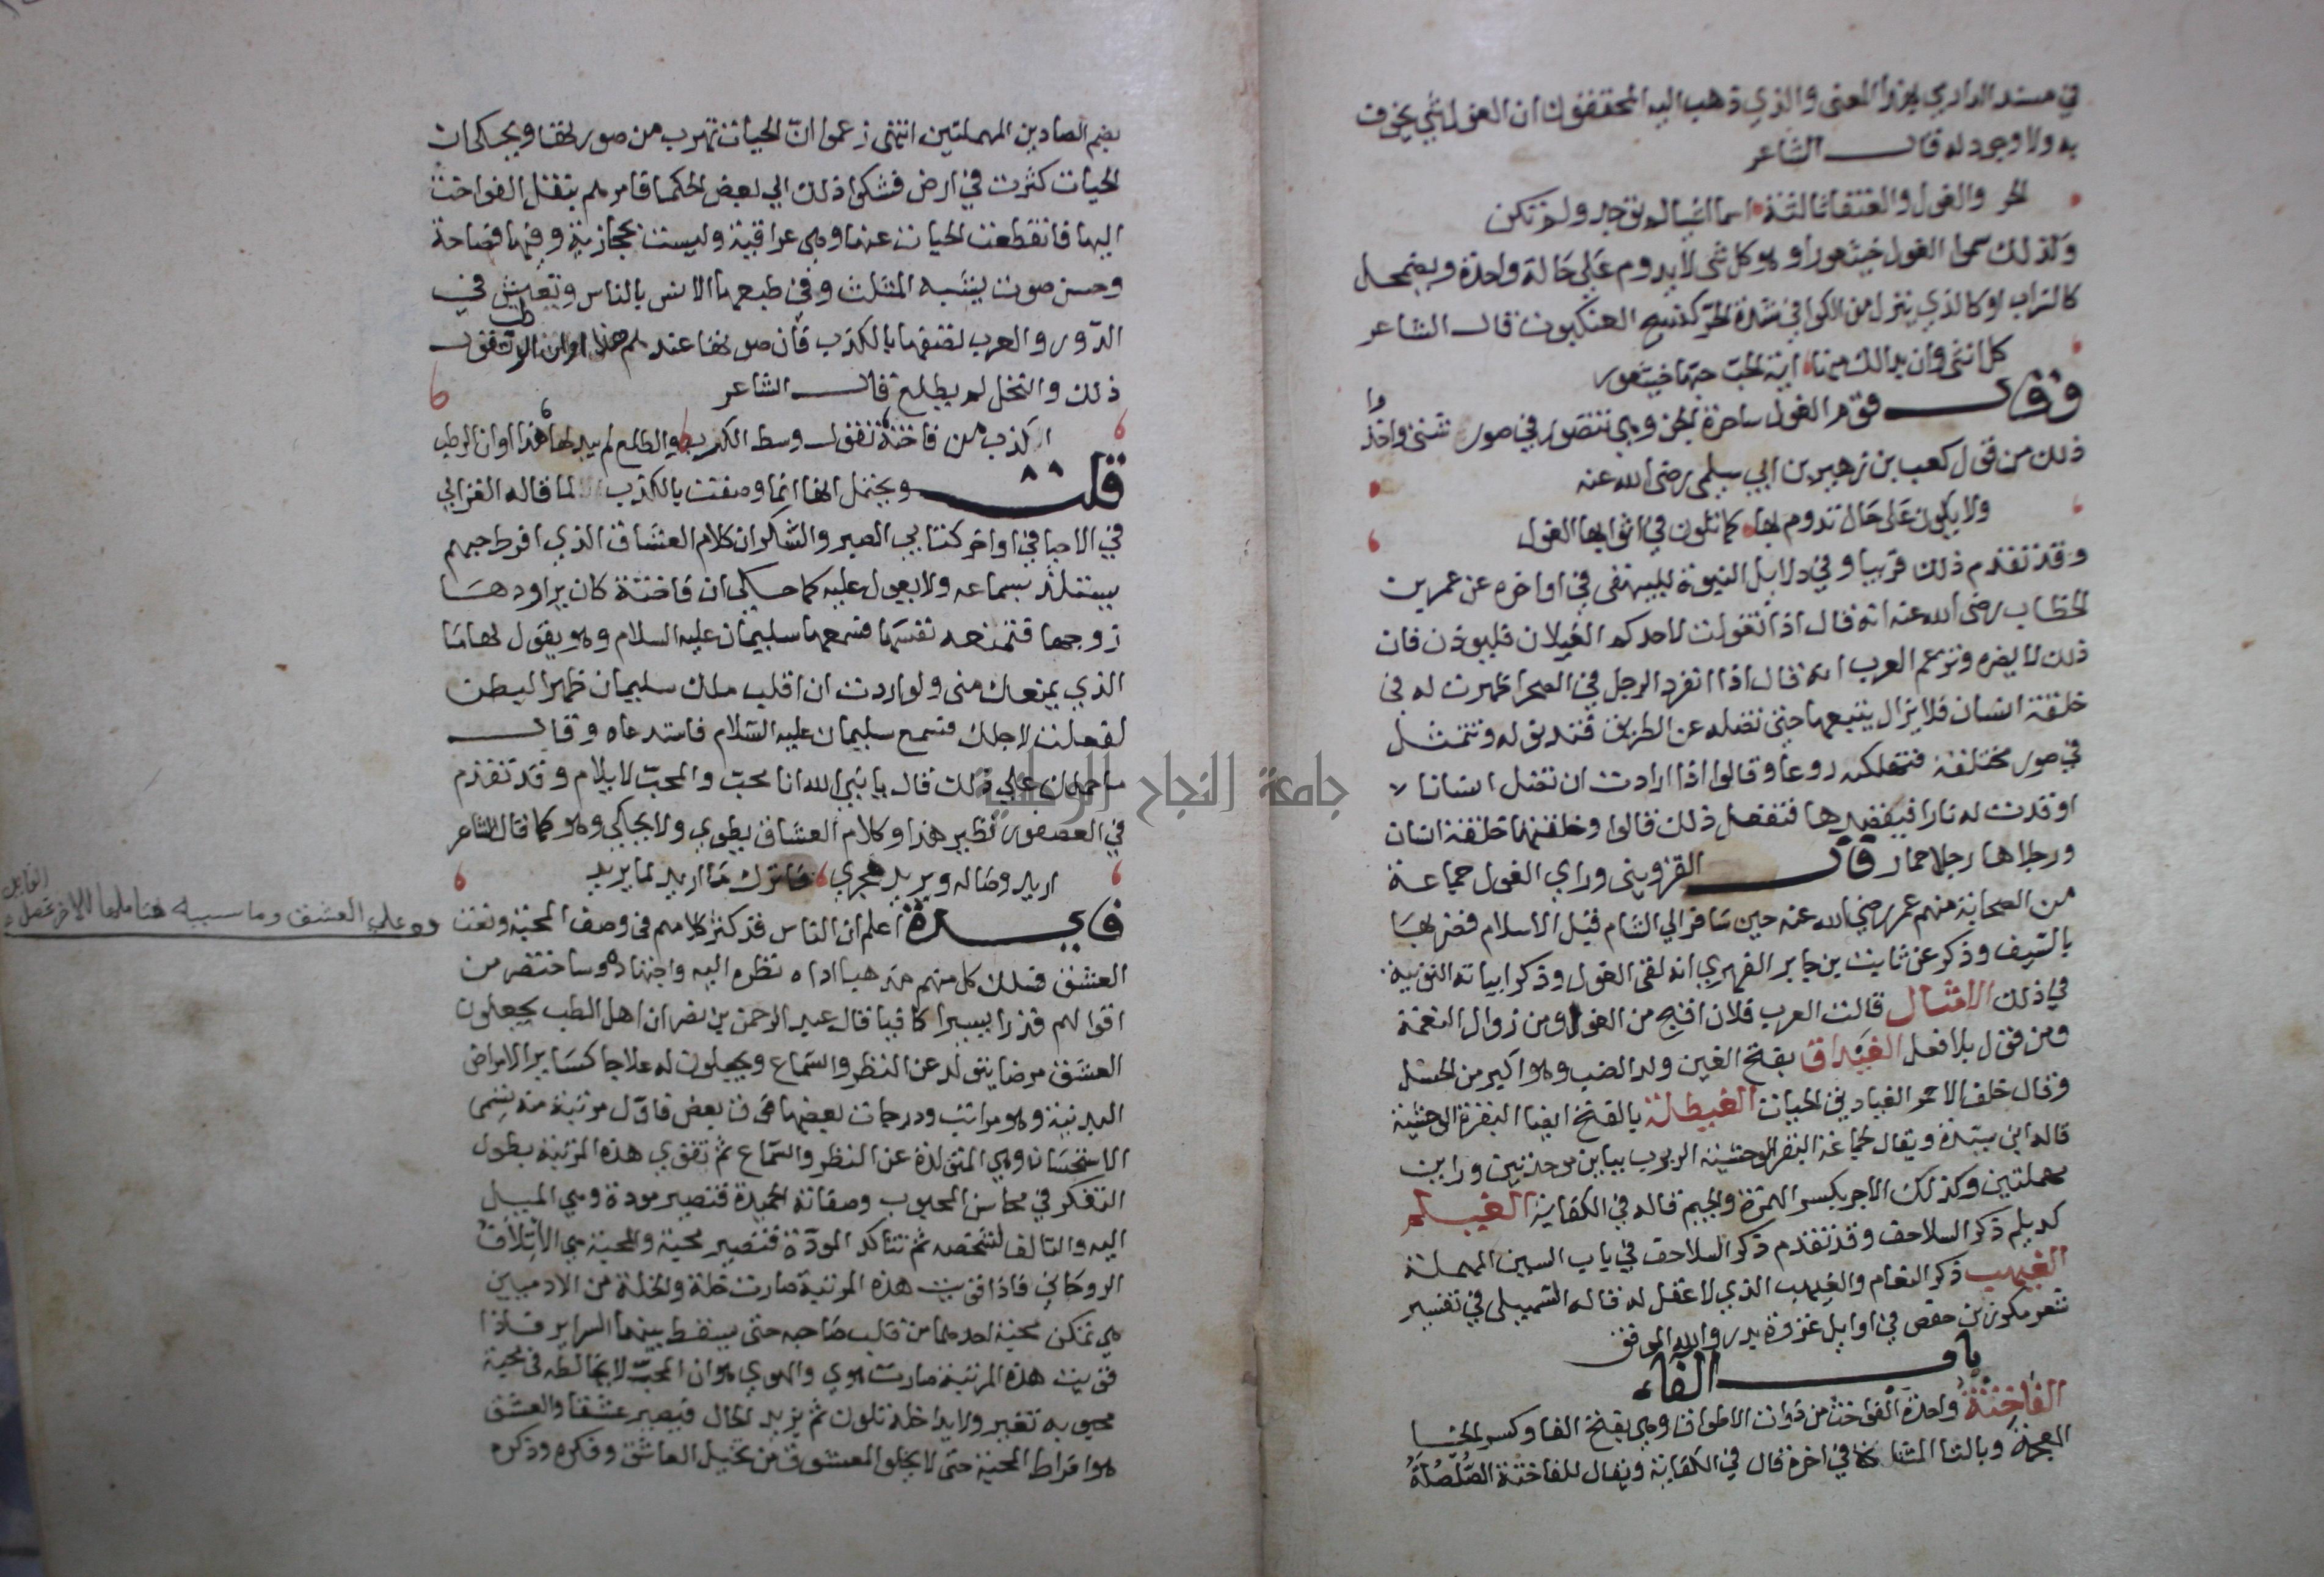 في مسند الدارمي بهذا المعنى والذي ذهب اليه المحققون ان الغول شي يخوف
به ولا وجود له قال الشاعر
الحر والغول والعنقا ثالثة اسما اشيا لم توجد ولم تكن
ولذلك سموا الغول خيتعورا وهو كل شي لا يدوم على حالة واحدة ويضمحل
كالسراب او كالذي ينزل من الكوا في شدة الحر كنسج العنكبوت قال الشاعر
كل انثى وان بدا لك منها اية الحب حبها خيتعور
وقال قوم الغول ساحرة الجن وهي تتصور في صور شتى واخذوا
ذلك من قول كعب بن زهير بن ابي سلمى رضى الله عنه
ولا يكون على حال تدوم بها كما تلون في اثوابها الغول
وقد تقدم ذلك قريبا وفي دلايل النبوة للبيهقى في اواخره عن عمر بن
الخطاب رضى الله عنه انه قال اذا تغولت لاحدكم الغيلان فليوذن فان
ذلك لا يضره وتزعم العرب انه قال اذا انفرد الرجل في الصحرا ظهرت له في
خلقة انسان فلا يزال يتبعها حتى تضله عن الطريق فتدنو له وتتمثل
في صور مختلفة فتهلكه روعا وقالوا اذا ارادت ان تضل انسانا
اوقدت له نارا فيقصدها فتفعل ذلك قالوا وخلقتها خلقة انسان
ورجلاها رجلا حمار قال القزوينى وراي الغول جماعة
من الصحابة منهم عمر رضي الله عنه حين سافر الي الشام قبل الاسلام فضربها
بالسيف وذكر عن ثابت بن جابر الفهري انه لقى الغول وذكر ابياته النونية
في ذلك الامثال قالت العرب فلان اقبح من الغول ومن زوال النعمة
ومن قول بلا فعل الغيداق بفتح الغين ولد الضب وهو اكبر من الحسل
وقال خلف الاحمر الغياديق الحيات الغيطلة بالفتح ايضا البقرة الوحشية
قاله ابن سيدة ويقال لجماعة البقر الوحشية الربرب ببايين موحدتين ورايين
مهملتين وكذلك الاجر بكسر الهمزة والجيم قاله في الكفاية الغيلم
كديلم ذكر السلاحف وقد تقدم ذكر السلاحف في باب السين المهملة
الغيهب ذكر النعام والغيهب الذي لا عقل له قاله السهيلى في تفسير
شعر مكرز بن حفص في اوايل غزوة بدر والله الموفق
باب الفاء
الفاختة واحدة الفواخت من ذوات الاطواق وهي بفتح الفا وكسر الخا
المعجمة وبالتا المثناة في اخره قال في الكفاية ويقال للفاختة الصلصلة
بضم الصادين المهملتين انتهى زعموا ان الحيات تهرب من صوتها ويحكى ان
الحيات كثرت في ارض فشكوا ذلك الي بعض الحكما فامرهم بنقل الفواخت
اليها فانقطعت الحيات عنها وهي عراقية وليست بحجازية وفيها فصاحة
وحسن صوت يشبه المثلث وفي طبعها الانس بالناس وتعيش في
الدور والعرب تصفها بالكذب فان صوتها عندهم هذا اوان الرطب تقول
ذلك والنخل لم يطلع قال الشاعر
اكذب من فاختة تقول وسط الكرب والطلع لم يبد لها هذا اوان الرطب
قلت ويحتمل انها انما وصفت بالكذب لما قاله الغزالي
في الاحيا في اواخر كتاب الصبر والشكر ان كلام العشاق الذي افرط حبهم
يستلذ بسماعه ولا يعول عليه كما حكي ان فاختة كان يراودها
زوجها فتمنعه نفسها فسمعها سليمان عليه السلام وهو يقول لها ما
الذي يمنعك منى ولو اردت ان اقلب ملك سليمان ظهرا لبطن
لفعلت لاجلك فسمع سليمان عليه السلام فاستدعاه وقال
ما حملك علي ذلك قال يا نبي الله انا محب والمحب لا يلام وقد تقدم
في العصفور نظير هذا وكلام العشاق يطوي ولا يحاكي وهو كما قال الشاعر
اريد وصاله ويريد هجري فاترك ما اريد لما يريد
فايدة اعلم ان الناس قد كثر كلامهم في وصف المحبة ونعت
العشق فسلك كل منهم مذهبا اداه نظره اليه واجتهاده وساختصر من
اقوالهم قدرا يسيرا كافيا قال عبد الرحمن بن نصر ان اهل الطب يجعلون
العشق مرضا يتولد عن النظر والسماع ويجعلون له علاجا كساير الامراض
البدنية وهو مراتب ودرجات بعضها فوق بعض فاول مرتبة منه تسمى
الاستحسان وهي المتولدة عن النظر والسماع ثم تقوي هذه المرتبة بطول
التفكر في محاسن المحبوب وصفاته الجميلة فتصير مودة وهي الميل
اليه والتالف لشخصه ثم تتاكد المودة فتصير محبة والمحبة هي الائتلاف
الروحاني فاذا قويت هذه المرتبة صارت خلة والخلة من الادميين
هي تمكن محبة احدهما من قلب صاحبه حتى يسقط بينهما السراير فاذا
قويت هذه المرتبة صارت هوي والهوي هو ان المحب لا يخالطه في محبة
محبوبه تغير ولا يداخله تلون ثم يزيد الحال فيصير عشقا والعشق
هو افراط المحبة حتى لا يخلو المعشوق من تخيل العاشق وفكره وذكره
العشق وما سببه
جامعة النجاح الوطنية